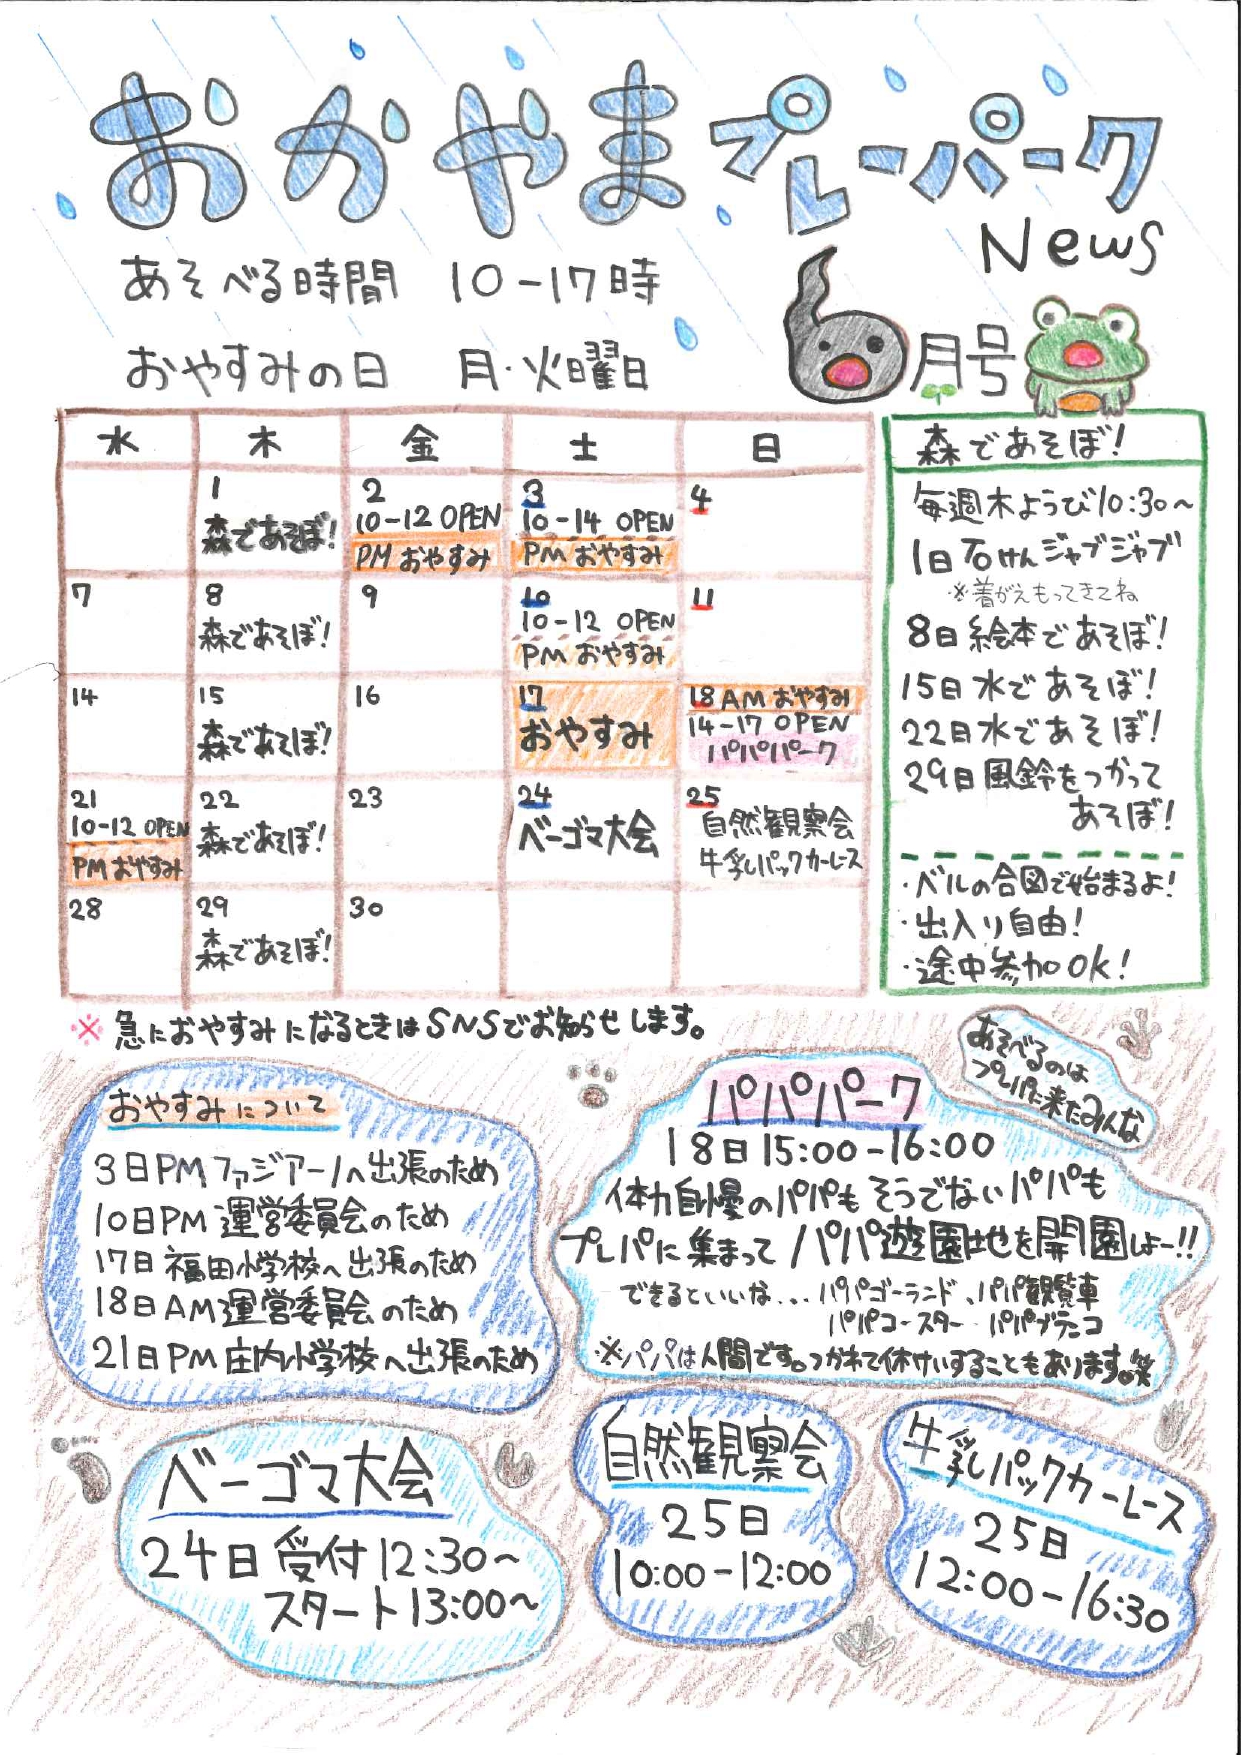 おかやまプレーパーク
News
あそべる時間 10-17時
6月号
おやすみの日 月・火曜日
水 木 金 土 日
1
森であそぼ!
2
10-12 OPEN
PM おやすみ
3
10-14 OPEN
PM おやすみ
4
7
8
森であそぼ!
9
10
10-12 OPEN
PM おやすみ
11
14
15
森であそぼ!
16
17
おやすみ
18 AM おやすみ
14-17 OPEN
パパパーク
21
10-12 OPEN
PM おやすみ
22
森であそぼ!
23
24
ベーゴマ大会
25
自然観察会
牛乳パックカーレース
28
29
森であそぼ!
30
森であそぼ!
毎週木ようび10:30~
1日石けんジャブジャブ
※着がえもってきてね
8日絵本であそぼ!
15日水であそぼ!
22日水であそぼ!
29日風鈴をつかって
あそぼ!
・ベルの合図で始まるよ!
・出入り自由!
・途中参加OK!
※急におやすみになるときはSNSでお知らせします。
おやすみについて
3日PMファジアーノへ出張のため
10日PM運営委員会のため
17日福田小学校へ出張のため
18日AM運営委員会のため
21日PM庄内小学校へ出張のため
あそべるのは
プレパに来たみんな
パパパーク
18日15:00-16:00
体力自慢のパパもそうでないパパも
プレパに集まってパパ遊園地を開園しよー!!
できるといいな...パパゴーランド、パパ観覧車
パパコースター パパブランコ
※パパは人間です。つかれて休けいすることもあります。笑
ベーゴマ大会
24日受付12:30~
スタート13:00~
自然観察会
25日
10:00-12:00
牛乳パックカーレース
25日
12:00-16:30